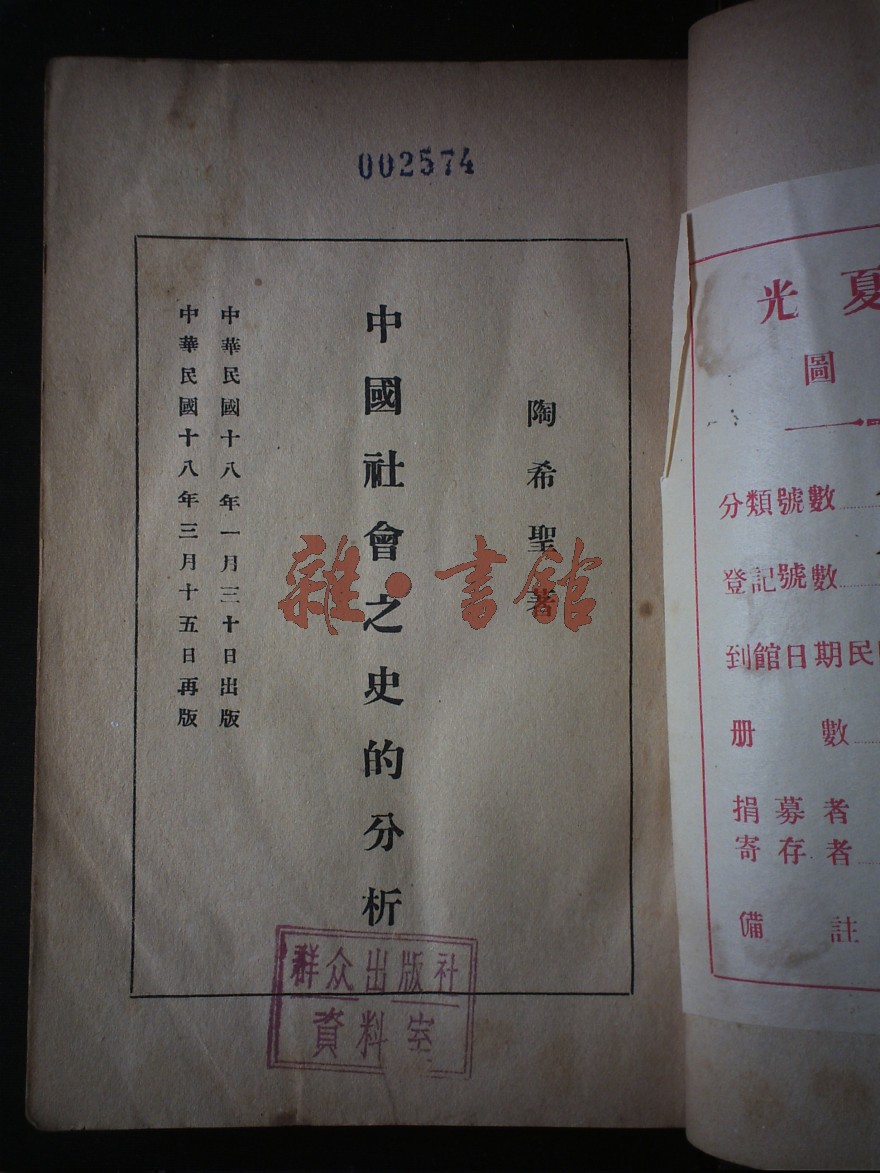 002574
陶希聖著
中國社會之史的分析
中華民國十八年一月三十日出版
中華民國十八年三月十五日再版
雜·書館
群众出版社
資料室
光夏
圖
分類號數
登記號數
到館日期民
册數
捐募者
寄存者
備註